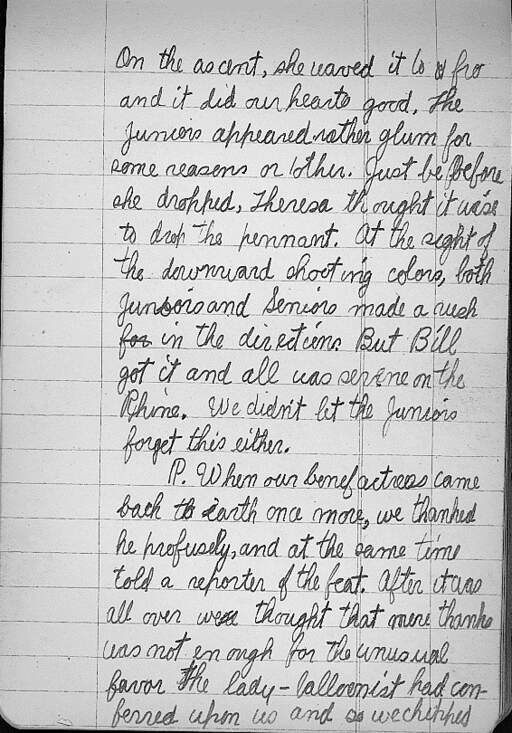 On the ascent, she waved it to & fro
and it did our hearts good. The
Juniors appeared rather glum for
some reasons or 'other. Just be before
she dropped, Theresa thought it wise
to drop the pennant. At the sight of
the downward shooting colors, both
Juniors and Seniors made a rush
for in the direction. But Bill
got it and all was serene on the
Rhine. We didn't let the Juniors
forget this either.
P. When our benefactress came
back to earth once more, we thanked
he profusely, and at the same time
told a reporter of the feat. After it was
all over we thought that mere thanks
was not enough for the unusual
favor the lady-balloonist had con-
ferred upon us and so we chipped